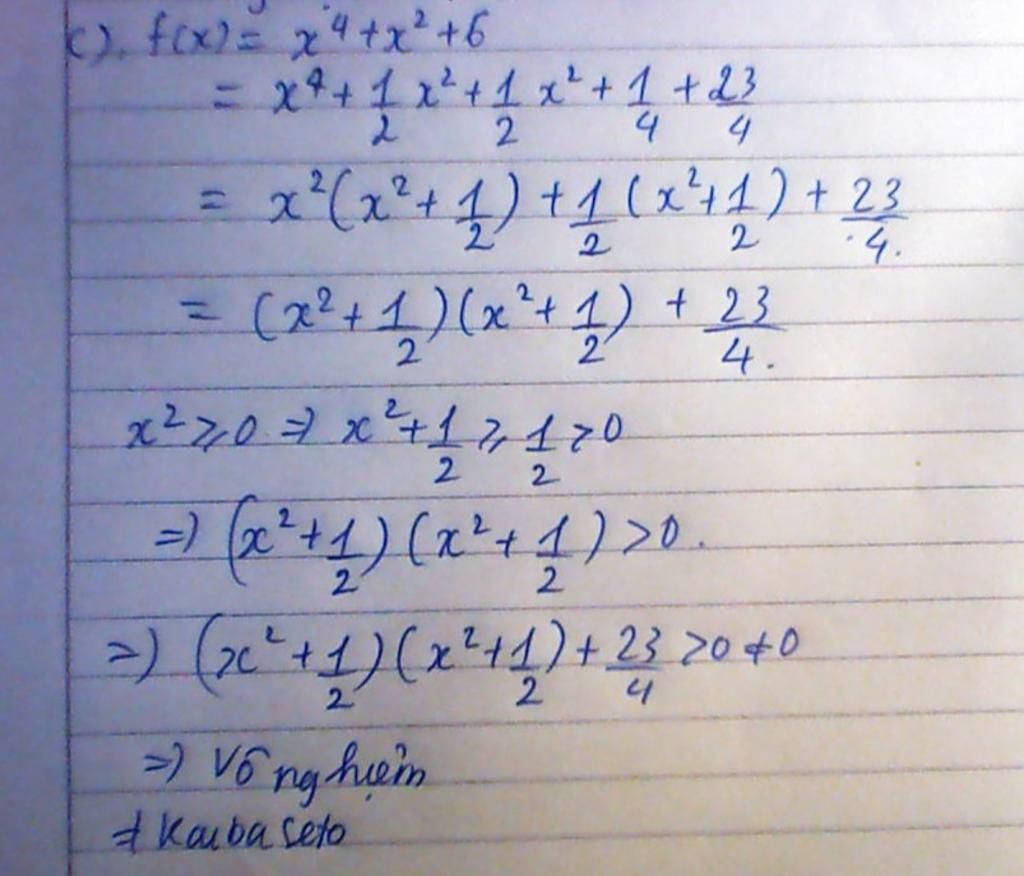 c). f(x) = x⁴ + x² + 6
= x⁴ + 1/2 x² + 1/2 x² + 1/4 + 23/4
= x²(x² + 1/2) + 1/2 (x² + 1/2) + 23/4.
= (x² + 1/2)(x² + 1/2) + 23/4.
x² ≥ 0 => x² + 1/2 ≥ 1/2 > 0
=> (x² + 1/2)(x² + 1/2) > 0.
=> (x² + 1/2)(x² + 1/2) + 23/4 > 0 ≠ 0
=> Vô nghiệm
≠ Kaiba Seto